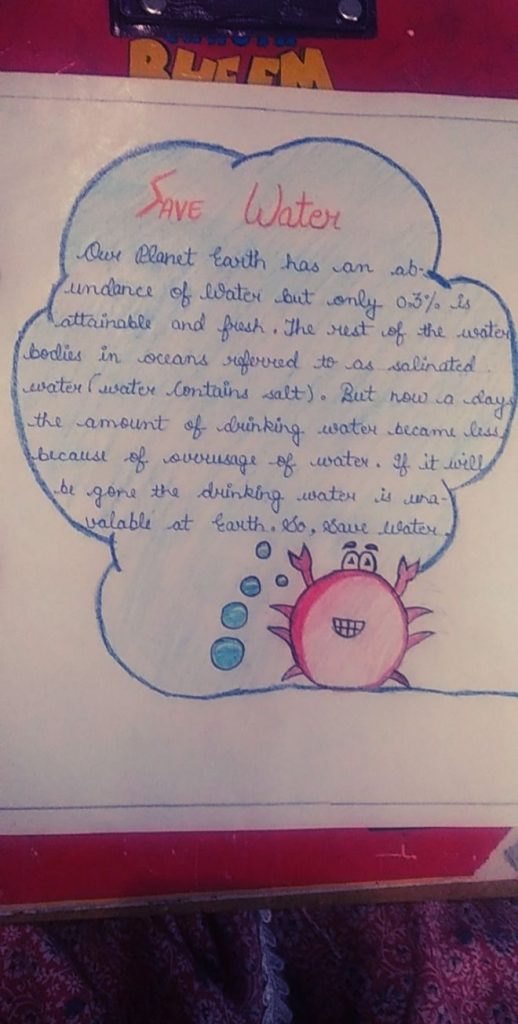 BHEEM
SAVE Water
Our Planet Earth has an ab-
undance of Water but only 0.3% is
attainable and fresh. The rest of the water
bodies in oceans referred to as salinated
water (water Contains salt). But now a days
the amount of drinking water became less
because of overusage of water. If it will
be gone the drinking water is una-
valable at Earth. So, Save water.